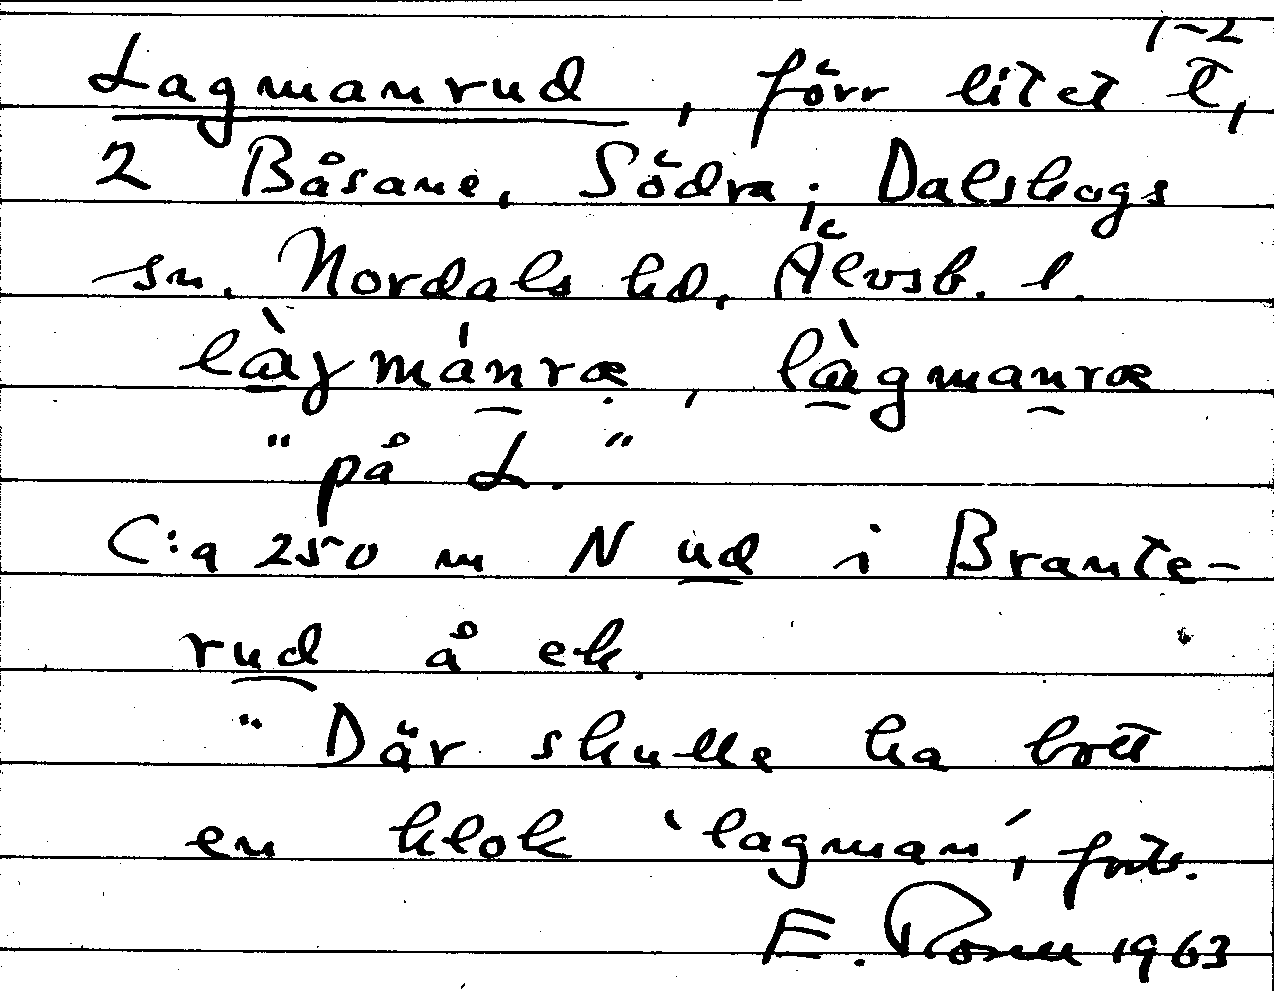 1-2
Lagmanrud, förr litet t,
2 Båsane, Södra; Dalskogs
sn. Nordals hd, Älvsb. l.
"på L."
C:a 250 m N ud i Brante-
rud å ek.
"Där skulle ha bott
en klok 'lagman', 
E. 1963